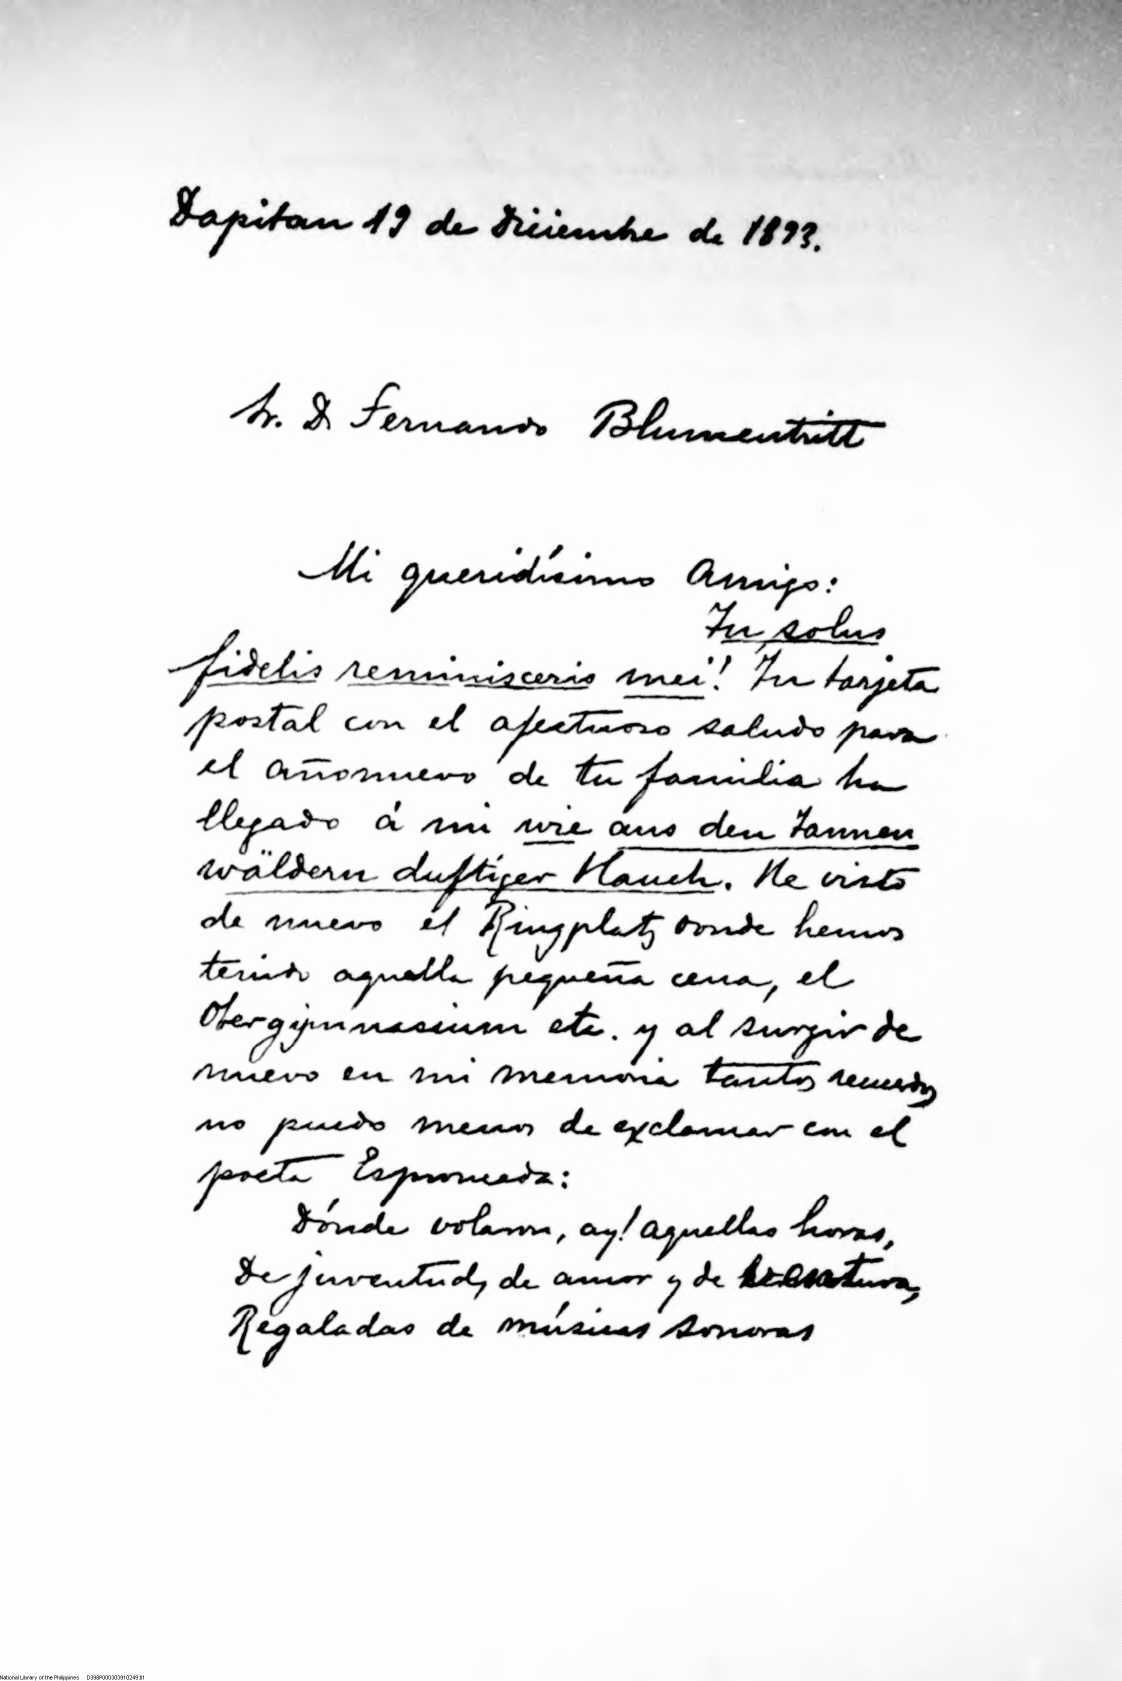 Dapitan 19 de Diciembre de 1893.
Sr. D. Fernando Blumentritt
Mi queridísimo Amigo:
Tu solus
fidelis reminisceris mei! Tu tarjeta
postal con el afectuoso saludo para
el añonuevo de tu familia ha
llegado á mi wie aus den Tannen
wäldern duftiger Hauch. He visto
de nuevo el Ringplatz donde hemos
tenido aquella pequeña cena, el
Obergymnasium etc. y al surgir de
nuevo en mi memoria tantos recuerdos
no puedo menos de exclamar con el
poeta Espronceda:
Dónde volaron, ay! aquellas horas,
De juventud, de amor y de
Regaladas de músicas sonoras
National Library of the Philippines